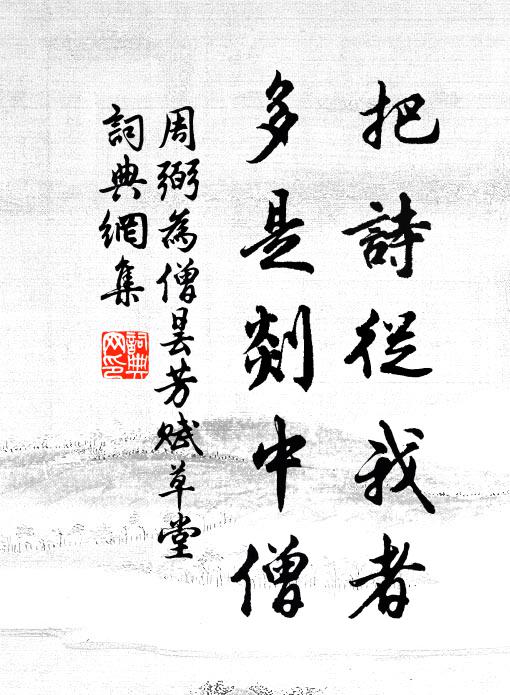 把詩從我者
多是剡中僧
周弼為僧曇芳賦草堂
詞典網集
詞典
网印